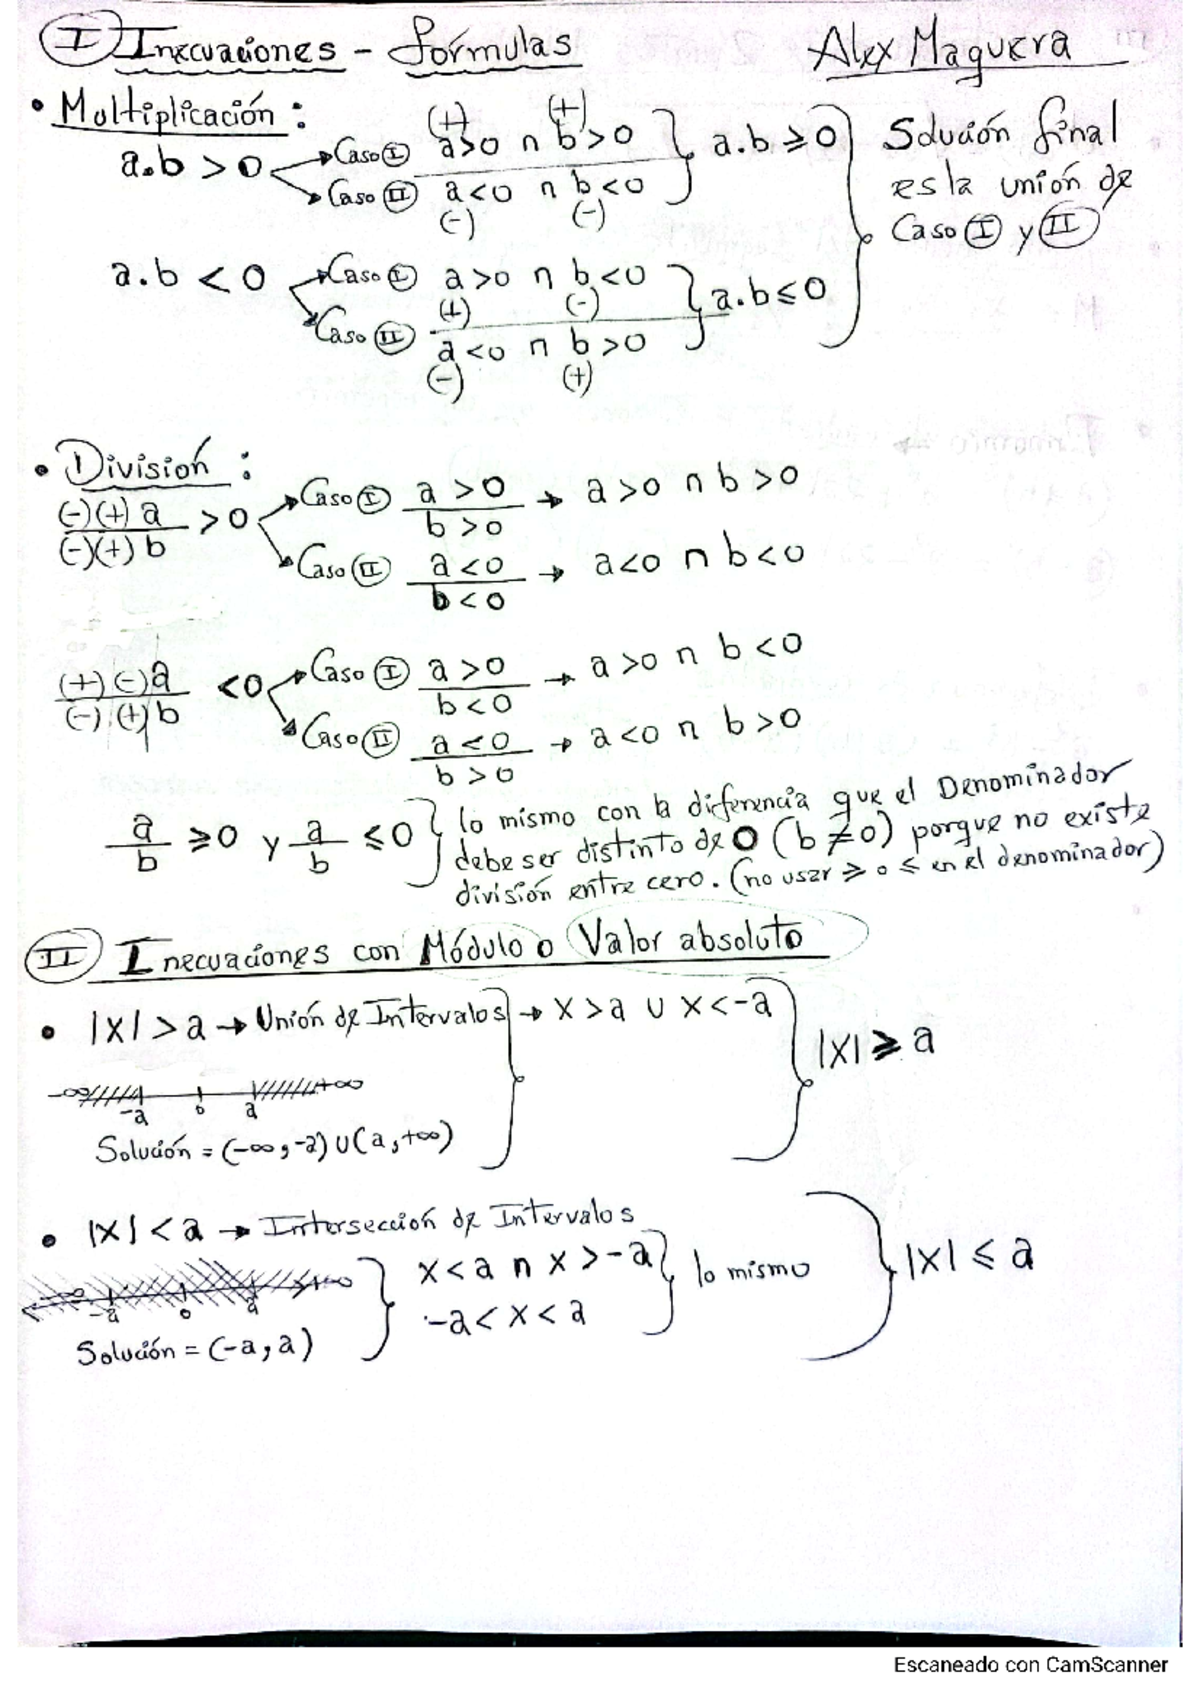 I Inecuaciones - fórmulas Alex Maquera
• Multiplicación:
a.b > 0 → Caso I a>0 ∩ b>0 } a.b ⩾ 0
(+) (+)
→ Caso II a<0 ∩ b<0
(-) (-)
Solución final
es la unión de
Caso I y II
a.b < 0 → Caso I a>0 ∩ b<0 } a.b ≤ 0
(+) (-)
→ Caso II a<0 ∩ b>0
(-) (+)
• División:
(-)(+) a / (-)(+) b > 0 → Caso I a>0 / b>0 → a>0 ∩ b>0
→ Caso II a<0 / b<0 → a<0 ∩ b<0
(+)(-)a / (-)(+)b <0 → Caso I a>0 / b<0 → a>0 ∩ b<0
→ Caso II a<0 / b>0 → a<0 ∩ b>0
a/b ⩾0 y a/b ≤0 } lo mismo con la diferencia que el Denominador
debe ser distinto de 0 (b ≠ 0) porque no existe
división entre cero. (no usar ⩾ o ≤ en el denominador)
II Inecuaciones con Módulo o Valor absoluto
• |x| > a → Unión de Intervalos → x>a ∪ x<-a } |x| ⩾ a
-∞ -a 0 a +∞
Solución = (-∞,-a) ∪ (a,+∞)
• |x| < a → Intersección de Intervalos
-∞ -a 0 a +∞ } x<a ∩ x>-a } lo mismo } |x| ≤ a
-a< x< a
Solución = (-a, a)
Escaneado con CamScanner